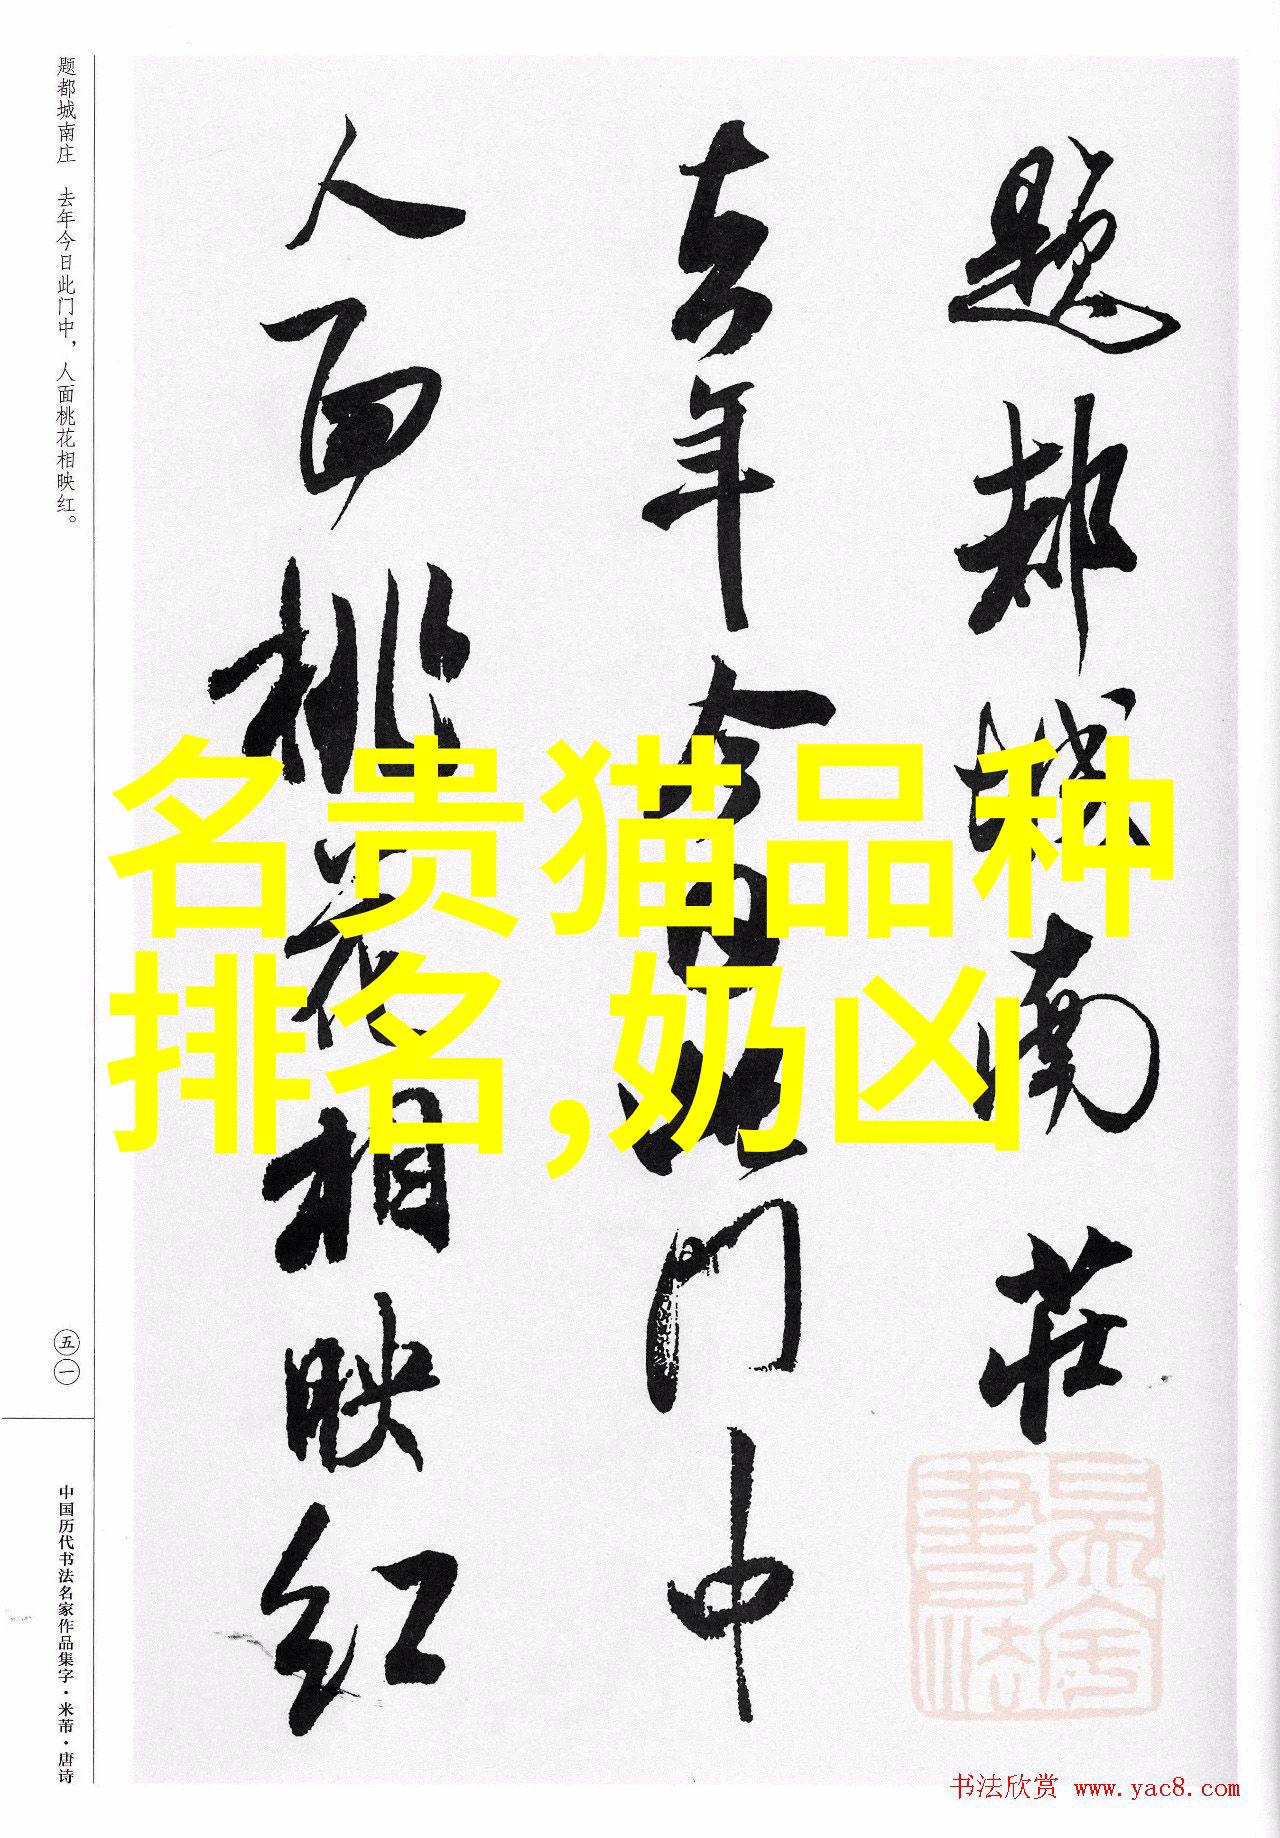 题都城南庄 去年今日此门中，人面桃花相映红。
題都城南莊
去年今日此门中
人面桃花相映红
名贵猫品种
排名,奶凶
五一
中国历代书法名家作品集字·米芾·唐诗
书法欣赏 www.yac8.com